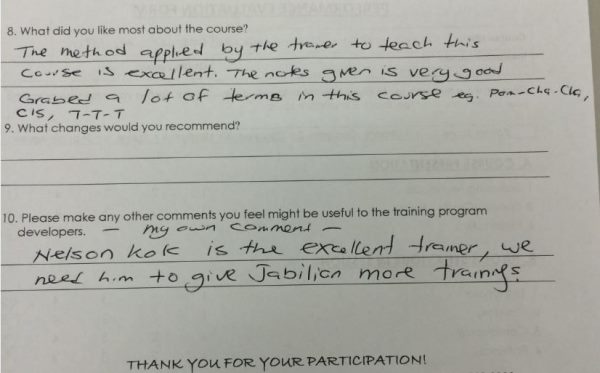 8. What did you like most about the course?
The method applied by the trainer to teach this
Course is excellent. The notes given is very good
Grabed a lot of terms in this course eg.
CIS, T-T-T
9. What changes would you recommend?
10. Please make any other comments you feel might be useful to the training program
developers. — my own comment —
Nelson kok is the excellent trainer, we
need him to give Jabilian more trainings
THANK YOU FOR YOUR PARTICIPATION!